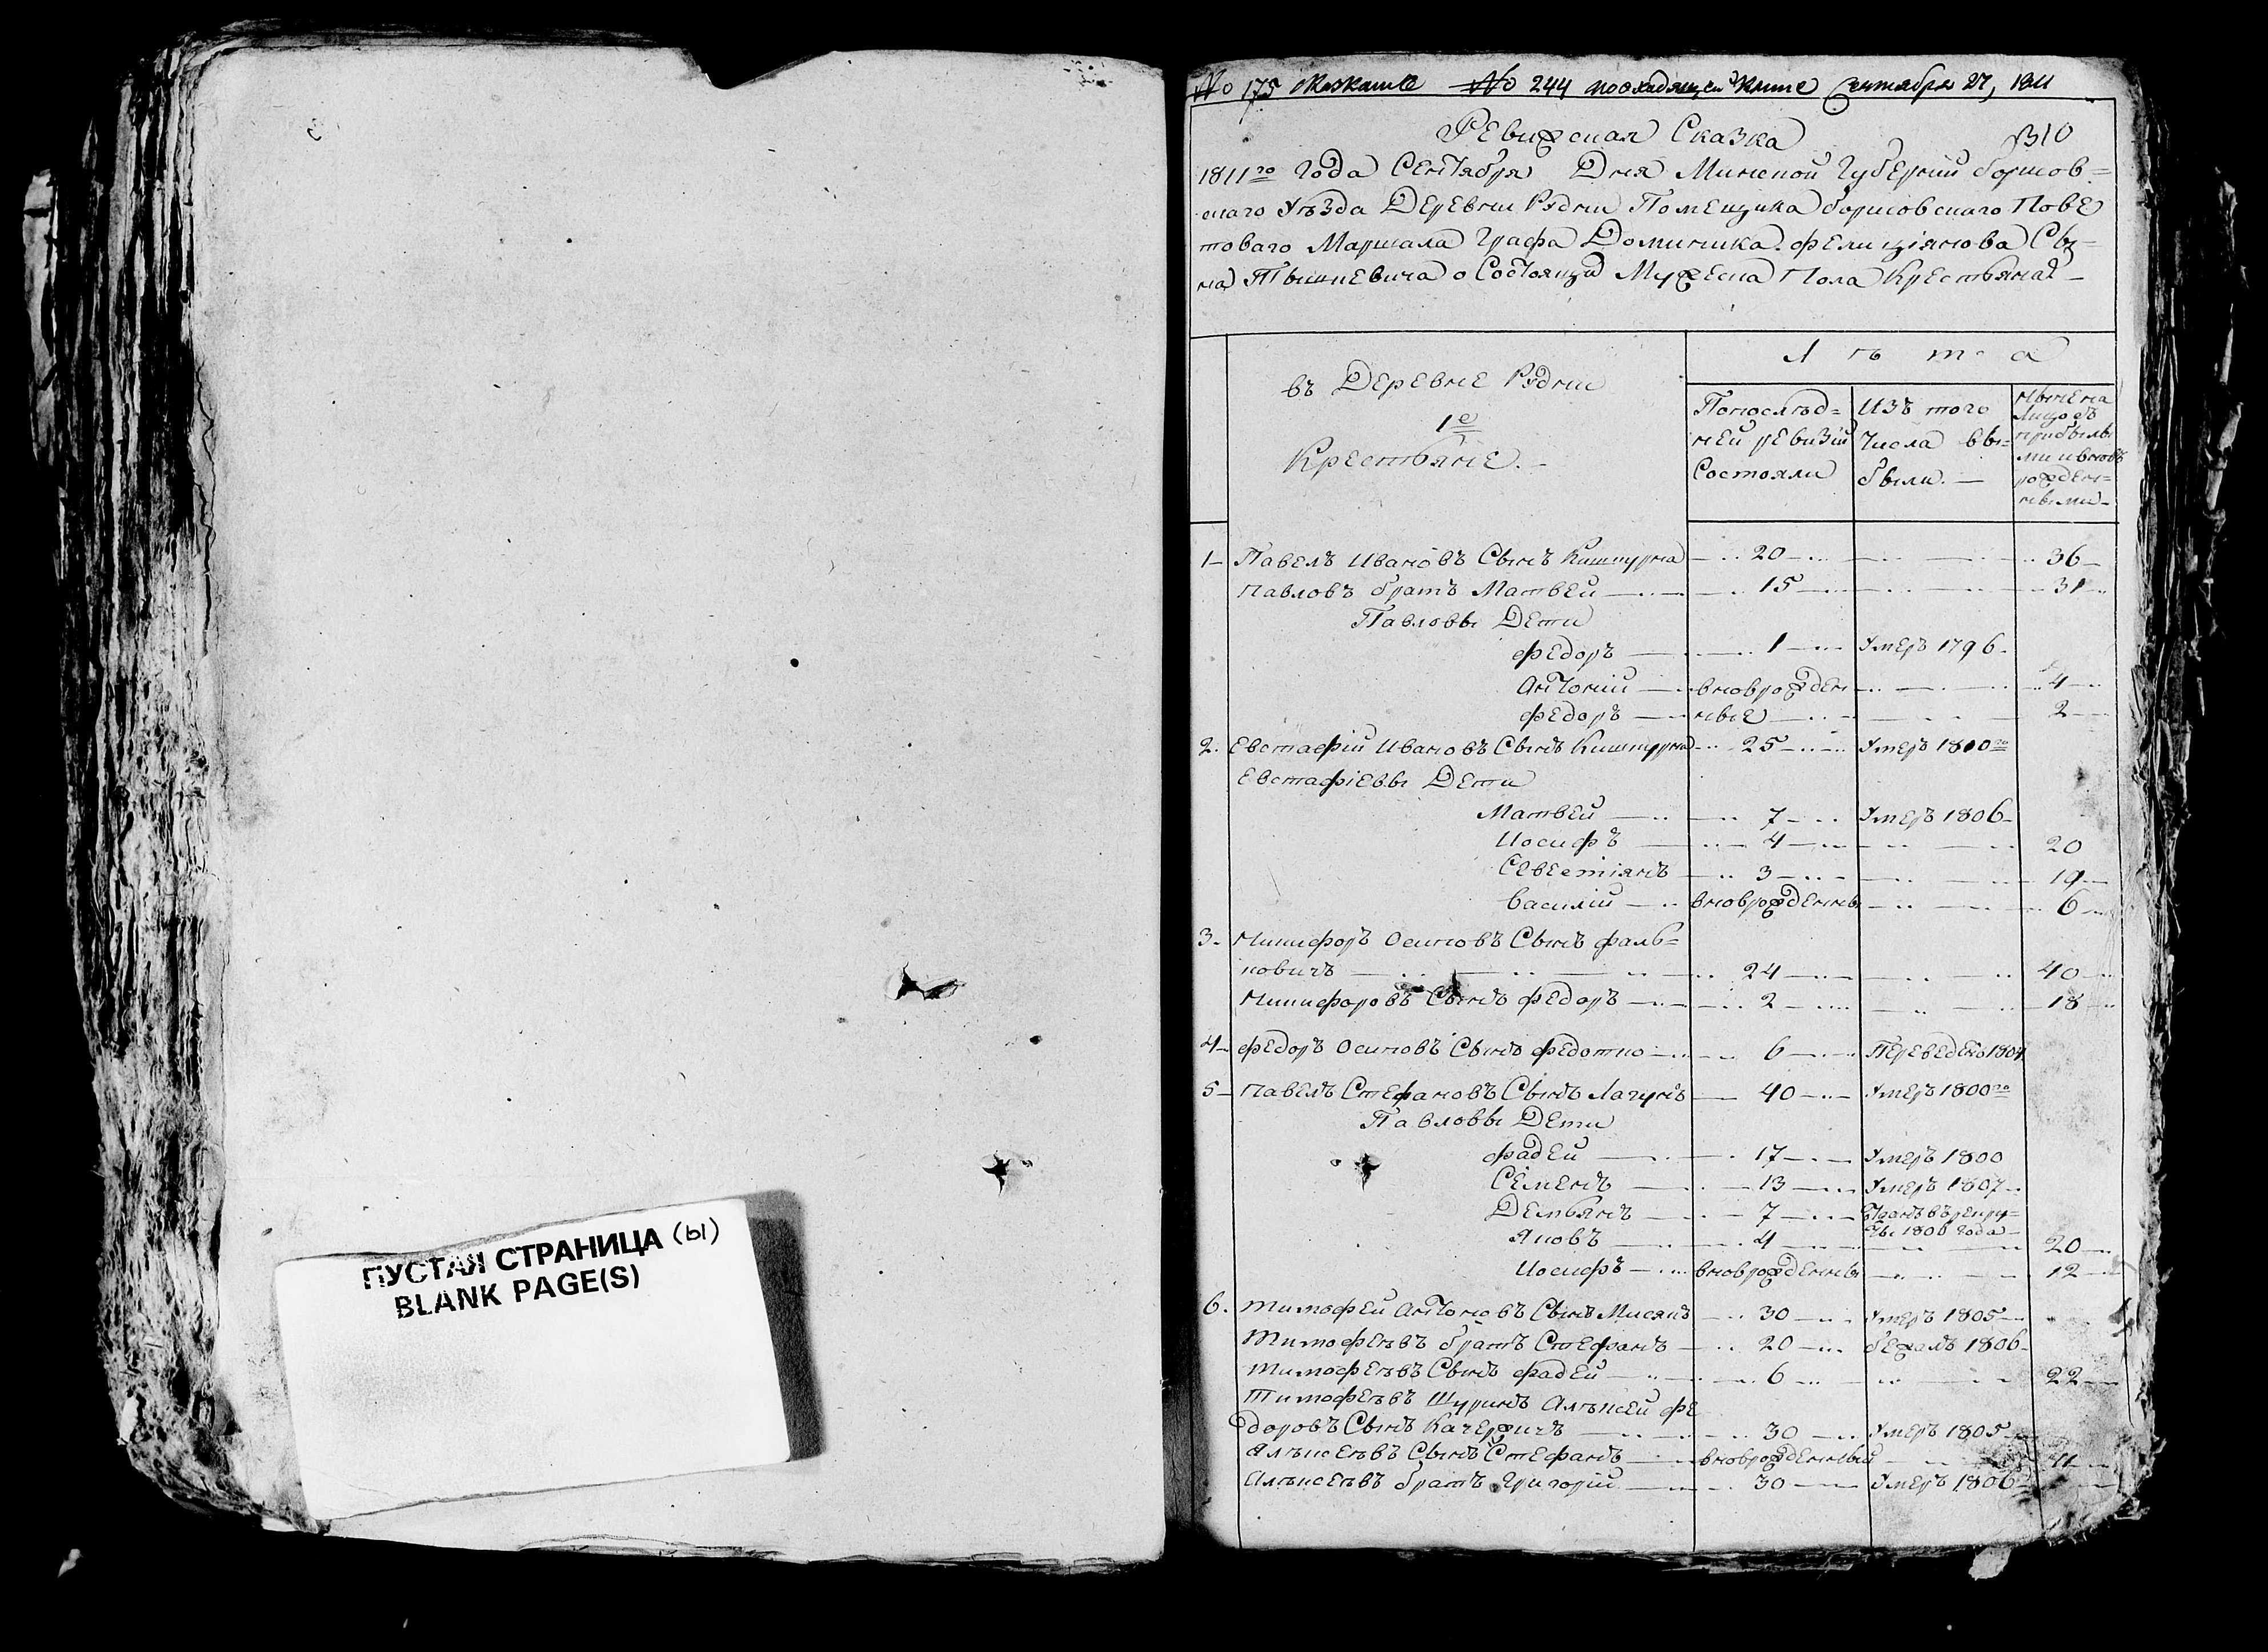 ПУСТАЯ СТРАНИЦА (ы)
BLANK PAGE(S)
No 175 No 244 по входящей книге Сентября 27, 1811
Ревижская Сказка
310
1811го Года Сентября Дня Минской Губерніи борисов=
скаго Уѣзда Деревни Рудни Помещика борисовскаго Пове
товаго Маршала Графа Доминика Фелиціянова Сы=
на Тышкевича о Состоящи Мужеска Пола Крестьянах
Лѣта
въ Деревне Рудни
1е
Крестьяне.
Попослѣд=
ней ревизіи
Состояли
Изъ того
Числа вы=
были.
Ныне на
лицо съ
прибылы
ми и вновь
рожден=
ными
1 Павелъ Ивановъ Сынъ Кишкурна 20 36
Павловъ братъ Матвей 15 31
Павловы Дети
Федоръ 1 Умеръ 1796.
Антоній вновро​жден 4
Федоръ ные 2
2. Евстафій Ивановъ Сынъ Кишкурна 25 Умеръ 1800го
Евстафіевы Дети
Матвей 7 Умеръ 1806
Иосифъ 4 20
Севестіянъ 3 19
Василій вноврожденны 6
3. Никифоръ Осиповъ Сынъ Фаль=
ковичъ 24 40
Никифоровъ Сынъ Федоръ 2 18
4 Федоръ Осиповъ Сынъ Федотко 6 Переведенъ 1804
5 Павелъ Стефановъ Сынъ Лагунъ 40 Умеръ 1800го
Павловы Дети
Фадей 17 Умеръ 1800
Семенъ 13 Умеръ 1807
Демьянъ 7 въ рекру=
ты 1806 Года
Яковъ 4 20
Иосифъ вноврожденны 12
6. Тимофей Антоновъ Сынъ Мисякъ 30 Умеръ 1805
Тимофеѣвъ братъ Стефанъ 20 бежалъ 1806
Тимофеѣвъ Сынъ Фадей 6 22
Тимофеѣвъ Шуринъ Алѣксей Фе
доровъ Сынъ Качержичъ 30 Умеръ 1805
Алѣксеѣвъ Сынъ Стефанъ вноврожденный 11
Алѣксеѣвъ братъ Григорій 30 Умеръ 1806